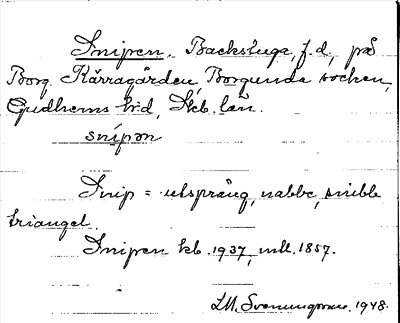 Snipen. Backstuga, f.d., på
Borg. Kärragården, Borgunda socken,
Gudhems hd, Skb. län.
snipən
Snip = utsprång, nabbe, snibb
triangel.
Snipen kb. 1937, mtl. 1857.
LM. Svenungsson. 1948.